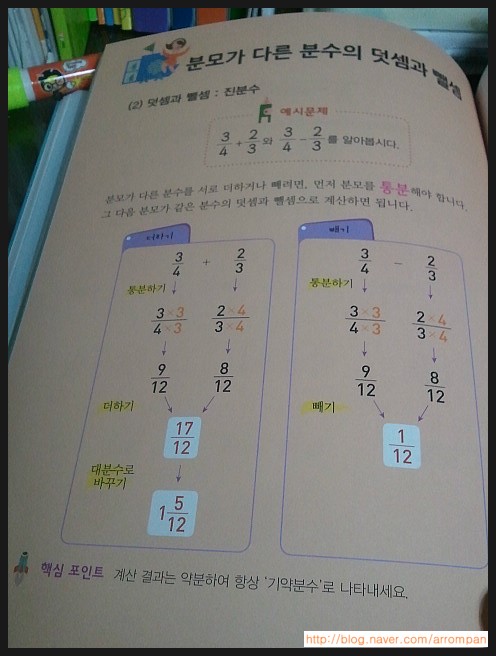 분모가 다른 분수의 덧셈과 뺄셈
(2) 덧셈과 뺄셈 : 진분수
예시문제
3/4 + 2/3 와 3/4 - 2/3 를 알아봅시다.
분모가 다른 분수를 서로 더하거나 빼려면, 먼저 분모를 통분해야 합니다.
그 다음 분모가 같은 분수의 덧셈과 뺄셈으로 계산하면 됩니다.
더하기
3/4 + 2/3
통분하기
3×3/4×3 2×4/3×4
9/12 8/12
더하기
17/12
대분수로
바꾸기
1 5/12
빼기
3/4 - 2/3
통분하기
3×3/4×3 2×4/3×4
9/12 8/12
빼기
1/12
핵심 포인트 계산 결과는 약분하여 항상 '기약분수'로 나타내세요.
http://blog.naver.com/arrompan